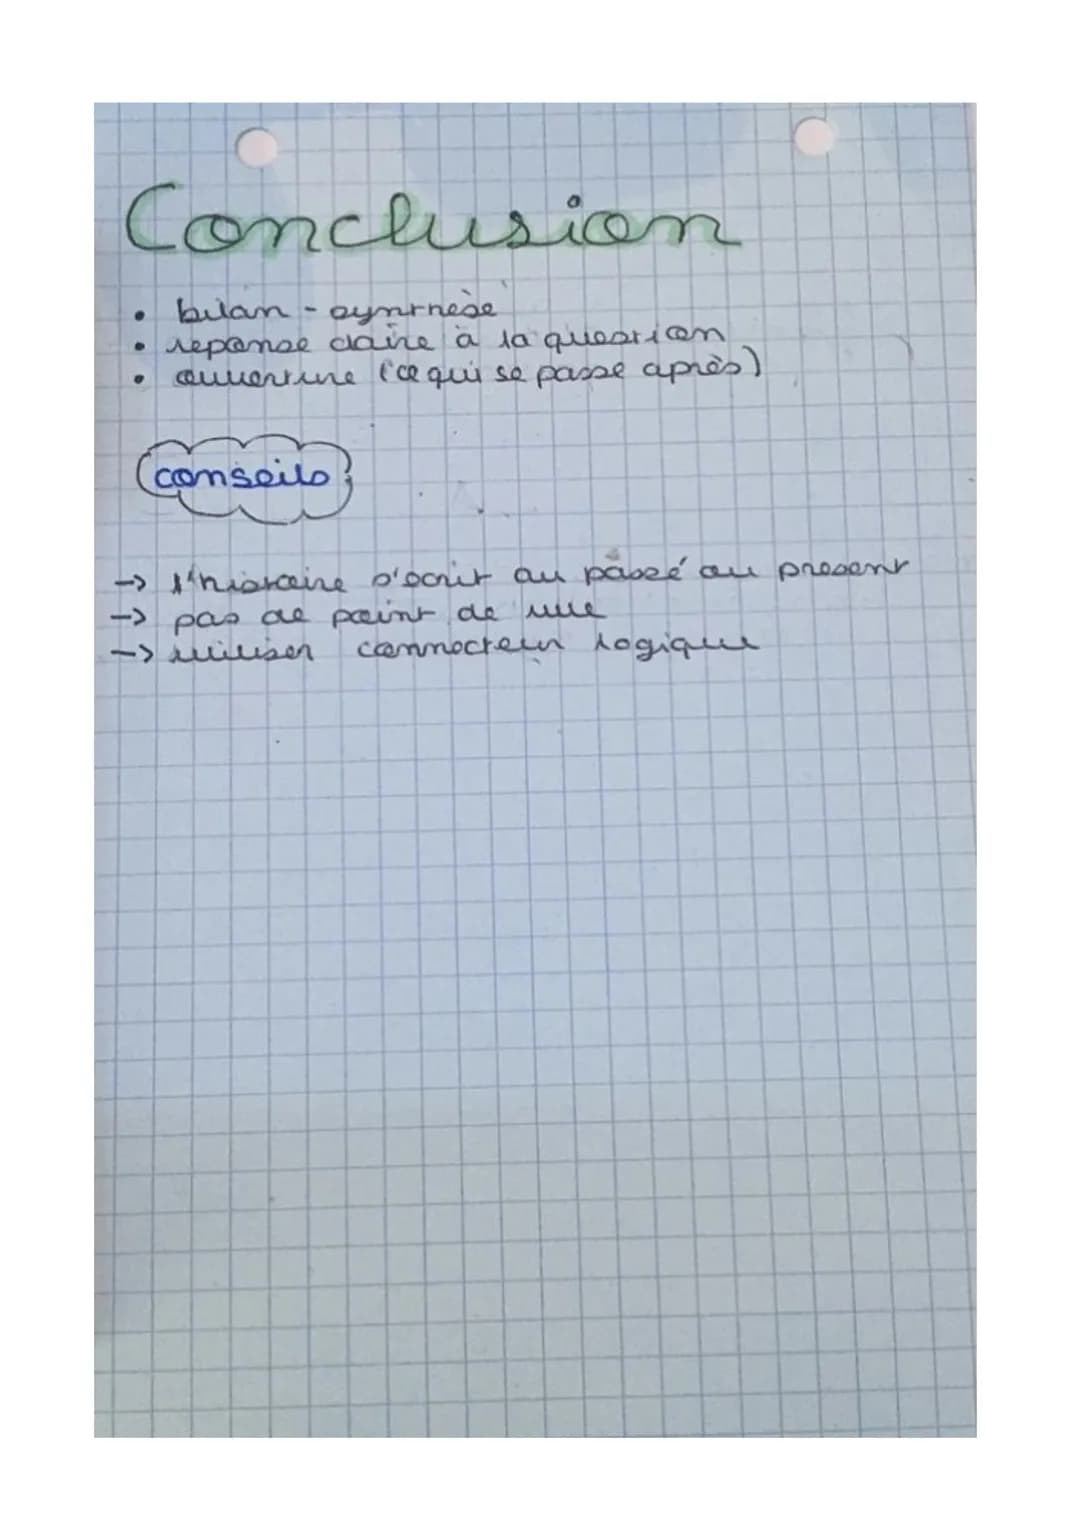 Conclusion
• bilan - synthèse
• reponse claire à la question
• ouverture (ce qui se passe après)
conseils
-> l'histoire s'ecrit au passé ou present
-> pas de point de vue
-> utiliser connecteur logique